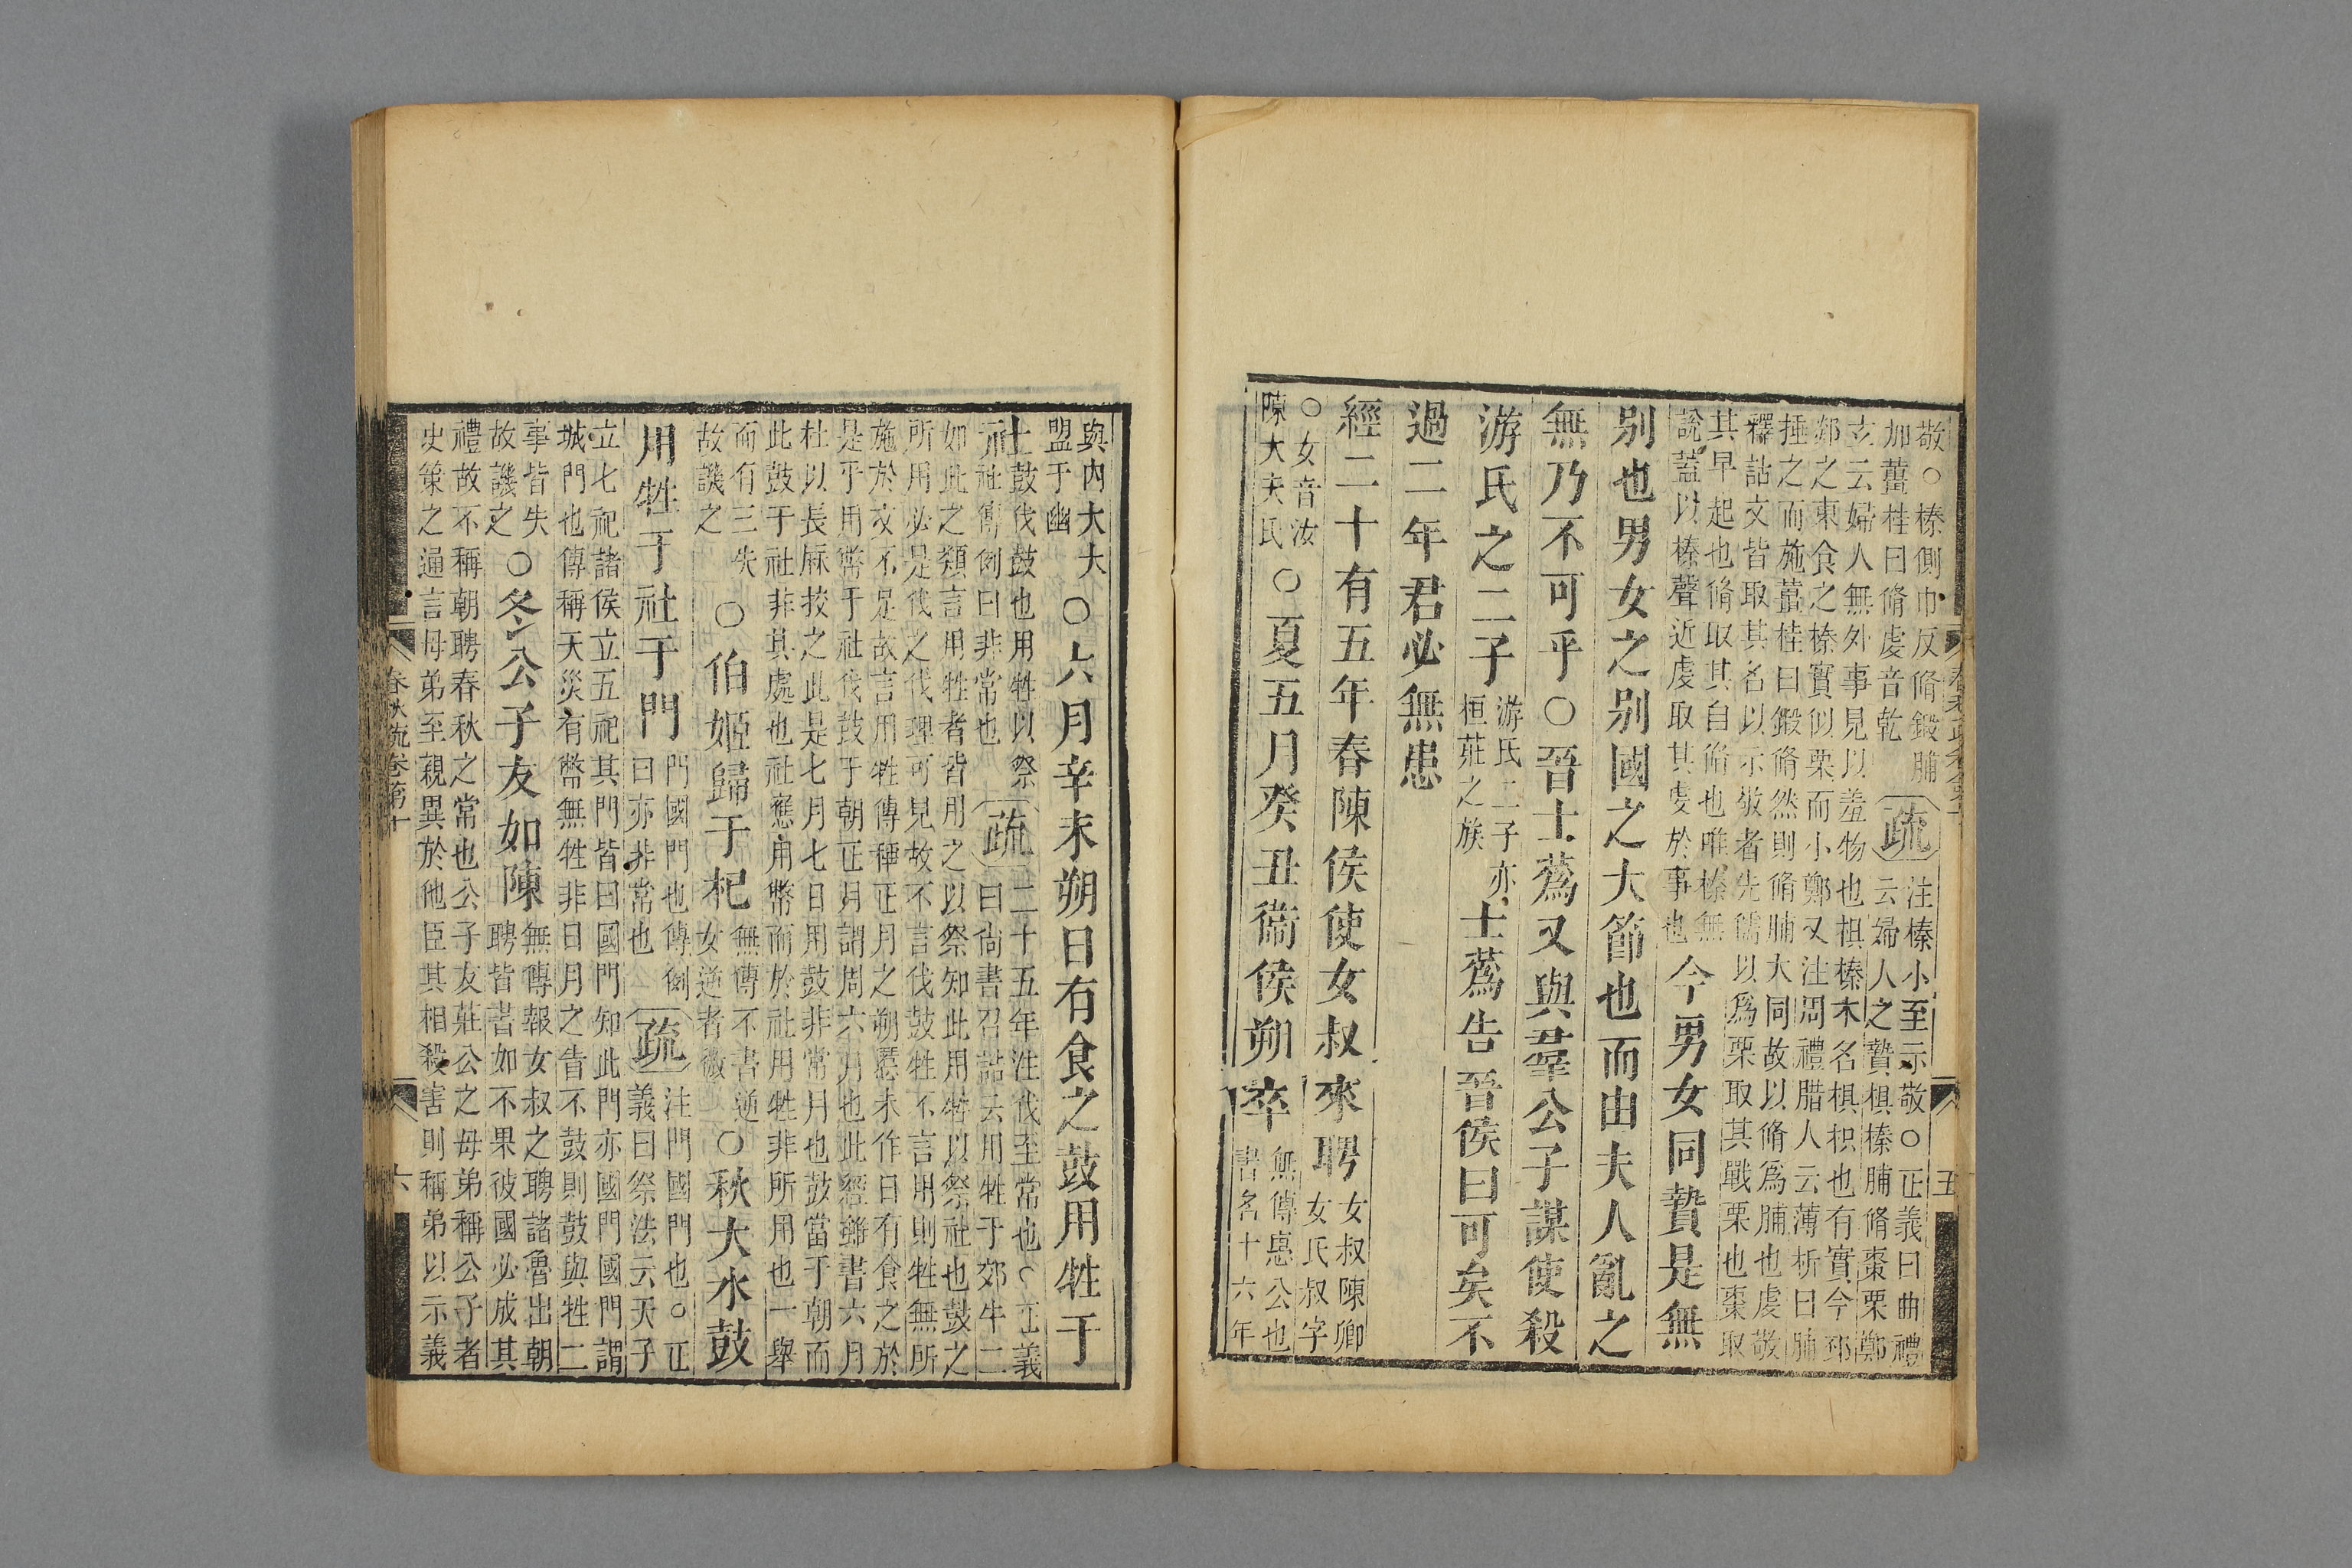 敬○榛側巾反脩鍛脯
加薑桂曰脩虔音乾
疏
注榛小至示敬○正義曰曲禮
云婦人之贄椇榛脯脩棗栗鄭
玄云婦人無外事見以羞物也椇榛木名椇枳也有實今邳
郯之東食之榛實似栗而小鄭又注周禮腊人云薄析曰脯
捶之而施薑桂曰鍛脩然則脩脯大同故以脩爲脯也虔敬
釋詁文皆取其名以示敬者先儒以爲栗取其戰栗也棗取
其早起也脩取其自脩也唯榛無
說蓋以榛聲近虔取其虔於事也
今男女同贄是無
别也男女之别國之大節也而由夫人亂之
無乃不可乎○晉士蒍又與羣公子謀使殺
游氏之二子
游氏二子亦
桓莊之族
士蒍告晉侯曰可矣不
過二年君必無患
經二十有五年春陳侯使女叔來聘
女叔陳卿
女氏叔字
○女音汝
陳大夫氏
○夏五月癸丑衞侯朔卒
無傳惠公也
書名十六年
五
與内大夫
盟于幽
○六月辛未朔日有食之鼓用牲于
社
鼓伐鼓也用牲以祭
社傳例曰非常也
疏
二十五年注伐至常也○正義
曰尚書召誥云用牲于郊牛二
如此之類言用牲者皆用之以祭知此用牲以祭社也鼓之
所用必是伐之伐理可見故不言伐鼓牲不言用則牲無所
施於文不足故言用牲傳稱正月之朔慝未作日有食之於
是乎用幣于社伐鼓于朝正月謂周六月也此經雖書六月
杜以長厤挍之此是七月七日用鼓非常月也鼓當于朝而
此鼓于社非其處也社應用幣而於社用牲非所用也一舉
而有三失
故譏之
○伯姬歸于杞
無傳不書逆
女逆者微
○秋大水鼓
用牲于社于門
門國門也傳例
曰亦非常也
疏
注門國門也○正
義曰祭法云天子
立七祀諸侯立五祀其門皆曰國門知此門亦國門國門謂
城門也傳稱天災有幣無牲非日月之眚不鼓則鼓與牲二
事皆失
故譏之
○冬公子友如陳
無傳報女叔之聘諸魯出朝
聘皆書如不果彼國必成其
禮故不稱朝聘春秋之常也公子友莊公之母弟稱公子者
史策之通言母弟至親異於他臣其相殺害則稱弟以示義
春秋疏卷第十
六